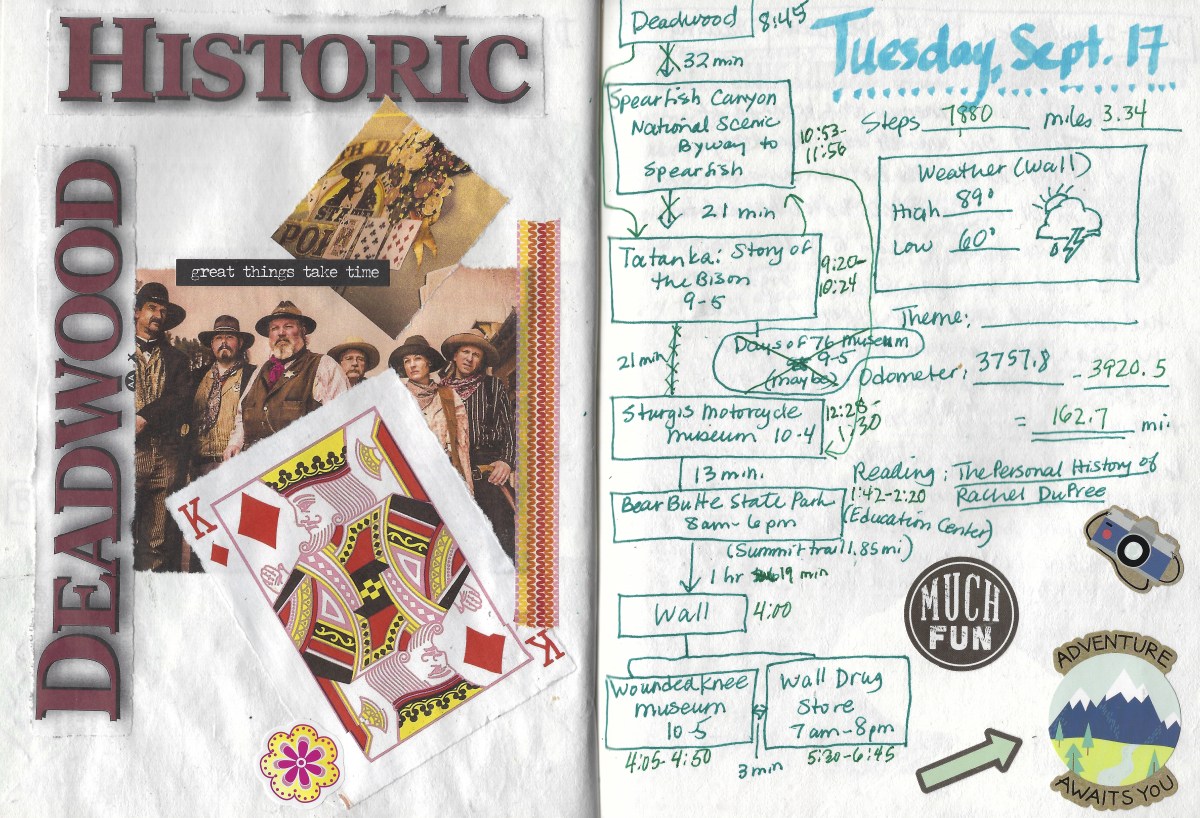 HISTORIC
DEADWOOD
TH DA
POK
great things take time
K
K
Deadwood 8:45
32 min
Spearfish Canyon
National Scenic
Byway to
Spearfish
10:53-
11:56
21 min
Tatanka: Story of
the Bison
9-5
9:20-
10:24
21 min
Days of 76 museum
9-5
(maybe)
Sturgis Motorcycle
museum 10-4
12:28-
1:30
13 min.
Bear Butte State Park
8am-6pm
1:42-2:20
(Education Center)
(Summit trail 1.85mi)
1 hr 19 min
Wall 4:00
Wounded Knee
museum
10-5
4:05-4:50
3 min
Wall Drug
Store
7am-8pm
5:30-6:45
Tuesday, Sept. 17
Steps 7880 miles 3.34
Weather (Wall)
High 89°
Low 60°
Theme:
Odometer: 3757.8 - 3920.5
= 162.7 mi.
Reading: The Personal History of
Rachel DuPree
MUCH
FUN
ADVENTURE
AWAITS YOU